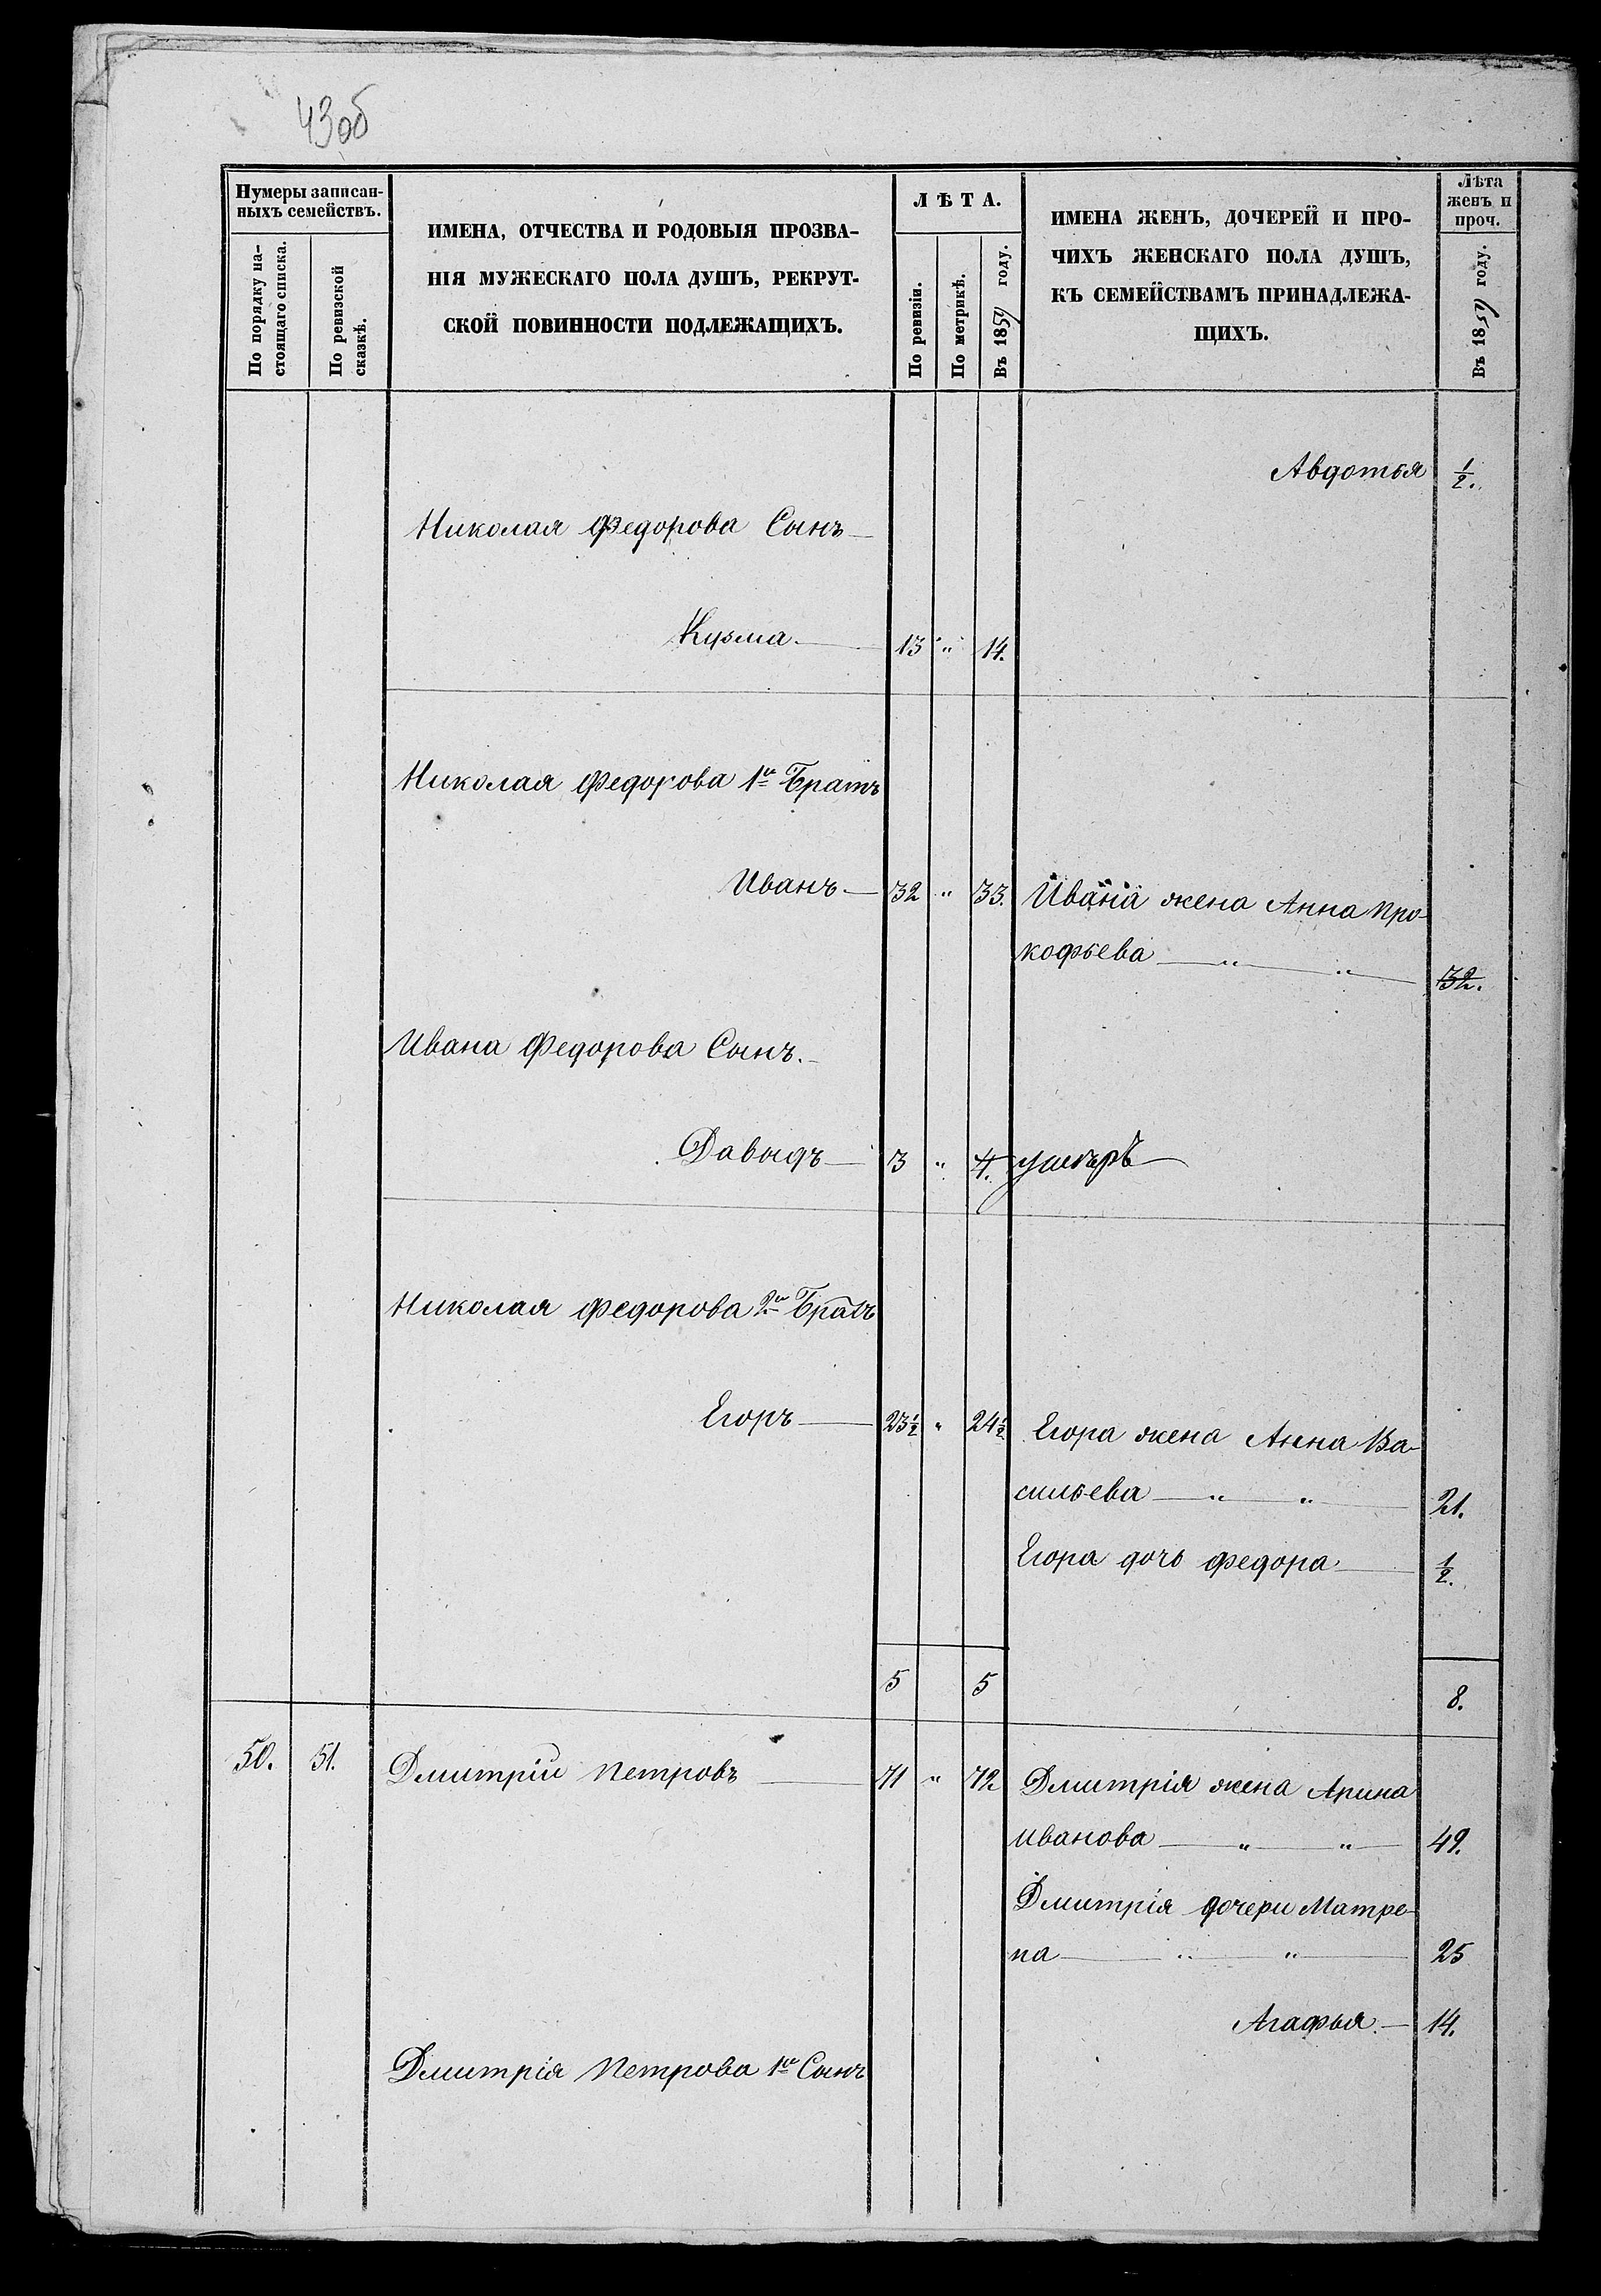 43об
Нумеры записан-
ныхъ семействъ.
По порядку на-
стоящаго списка.
По ревизской
сказкѣ.
ИМЕНА, ОТЧЕСТВА И РОДОВЫЯ ПРОЗВА-
НІЯ МУЖЕСКАГО ПОЛА ДУШЪ, РЕКРУТ-
СКОЙ ПОВИННОСТИ ПОДЛЕЖАЩИХЪ.
ЛѢТА.
По ревизіи.
По метрикѣ.
Въ 1859 году.
ИМЕНА ЖЕНЪ, ДОЧЕРЕЙ И ПРО-
ЧИХЪ ЖЕНСКАГО ПОЛА ДУШЪ,
КЪ СЕМЕЙСТВАМЪ ПРИНАДЛЕЖА-
ЩИХЪ.
Лѣта
женъ и
проч.
Въ 1859 году.
Авдотья ½.
Николая Федорова Сынъ
Кузма 13 " 14.
Николая Федорова 1й Братъ
Иванъ 32 " 33. Ивана жена Анна Про-
кофьева " " 32.
Ивана Федорова Сынъ.
Давыдъ 3 " 4. умеръ
Николая Федорова 2й Братъ
Егоръ 23½ " 24½ Егора жена Анна Ва-
сильева " " 21.
Егора дочь Федора ½.
5 5 8.
50. 51. Дмитрій Петровъ 71 " 72 Дмитрія жена Арина
Иванова " " 49.
Дмитрія дочери Матре-
на " " 25
Агафья. 14.
Дмитрія Петрова 1й Сынъ